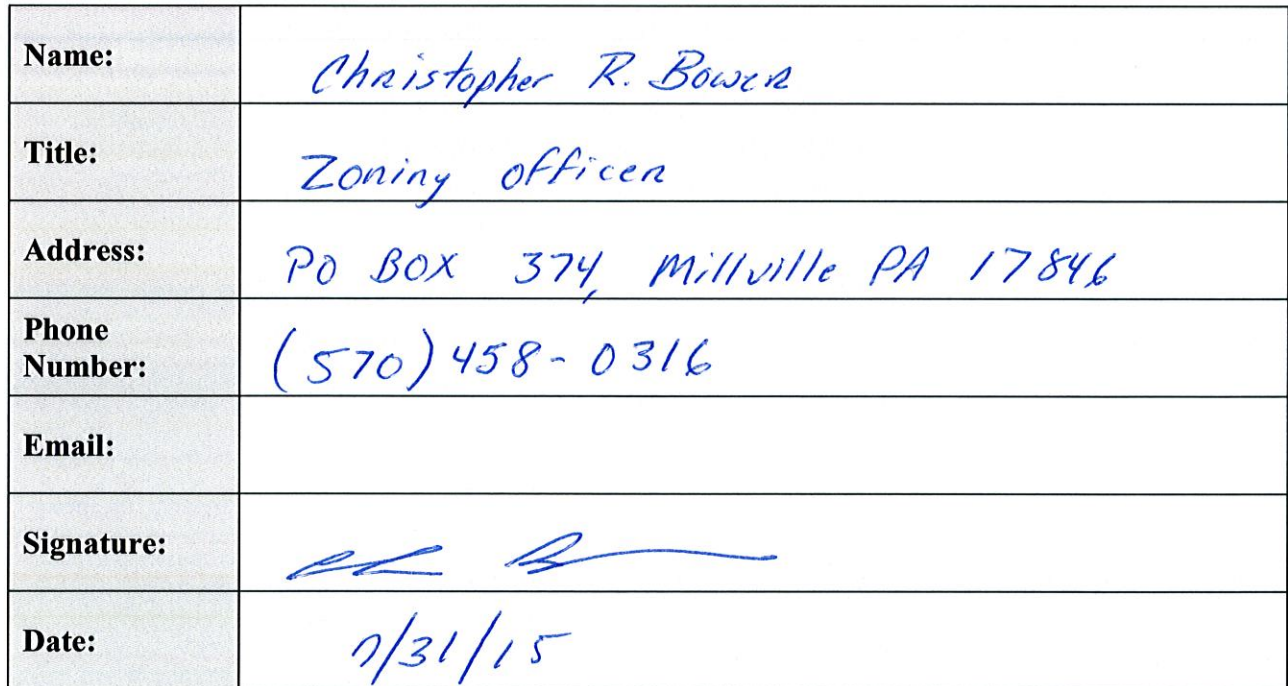 Name: Christopher R. Bower
Title: Zoning officer
Address: PO BOX 374, Millville PA 17846
Phone
Number: (570) 458-0316
Email:
Signature:
Date: 7/31/15